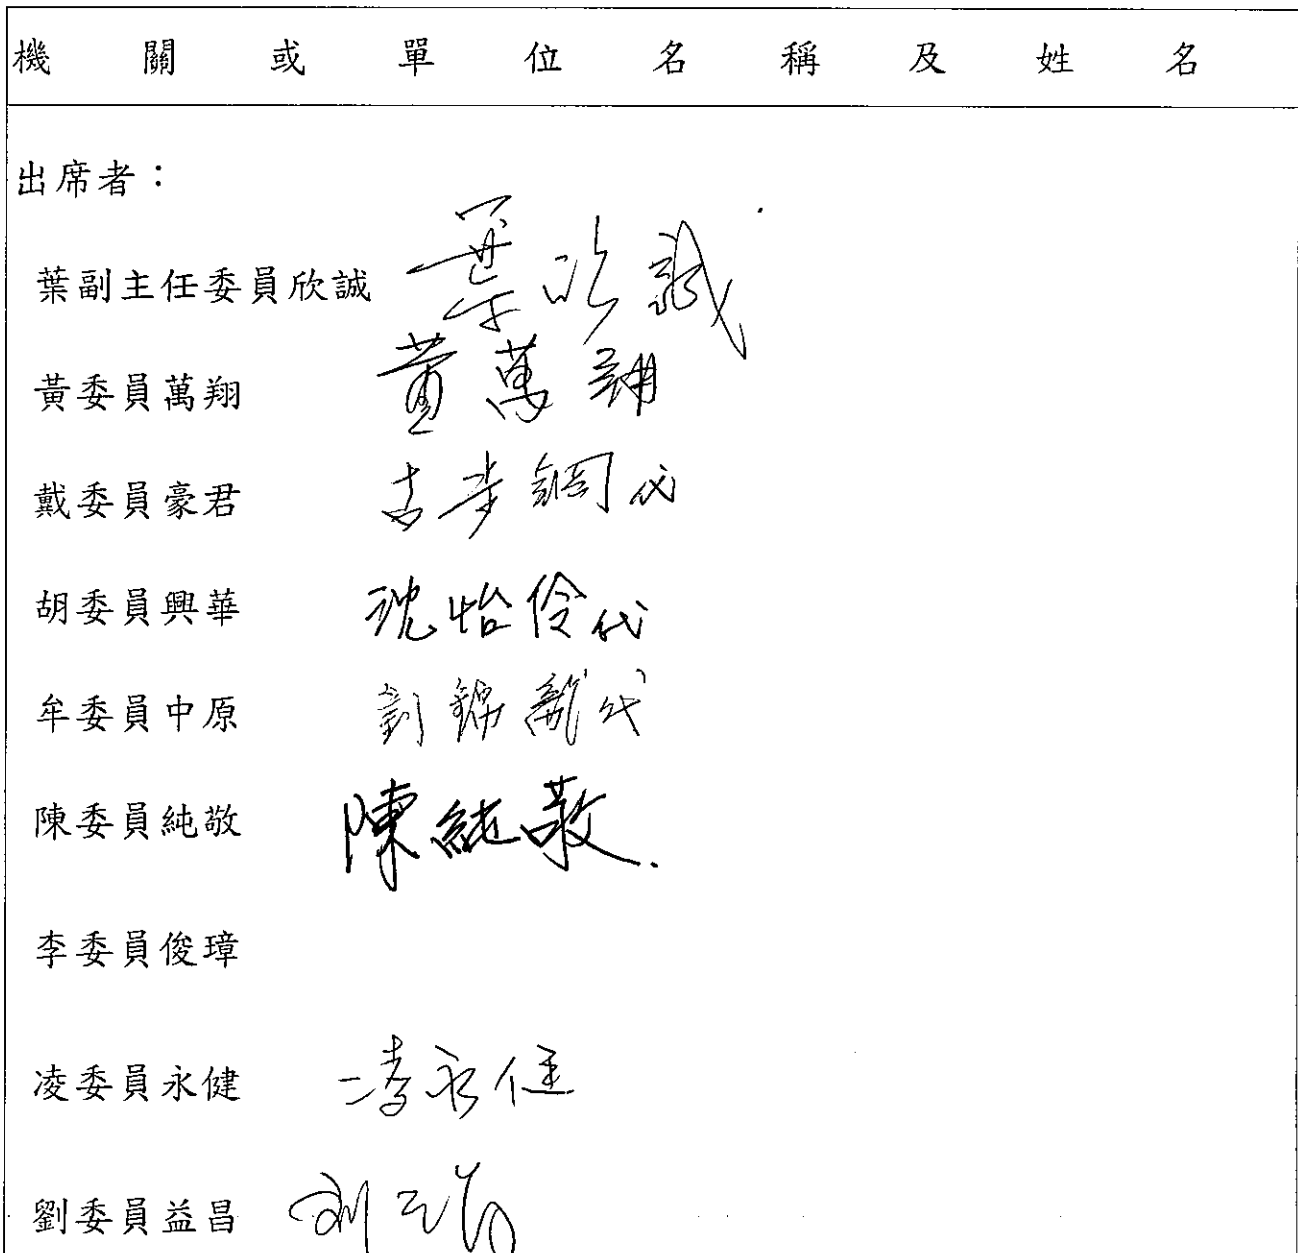 機關或單位名稱及姓名
出席者：
葉副主任委員欣誠 葉欣誠
黃委員萬翔 黃萬翔
戴委員豪君 代
胡委員興華 沈怡伶代
牟委員中原 劉錦龍代
陳委員純敬 陳純敬
李委員俊璋
凌委員永健 凌永健
劉委員益昌 劉益昌